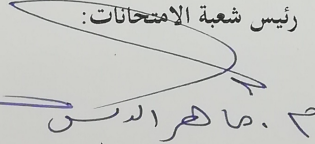 رئيس شعبة الامتحانات:
م. ماهر الدبس